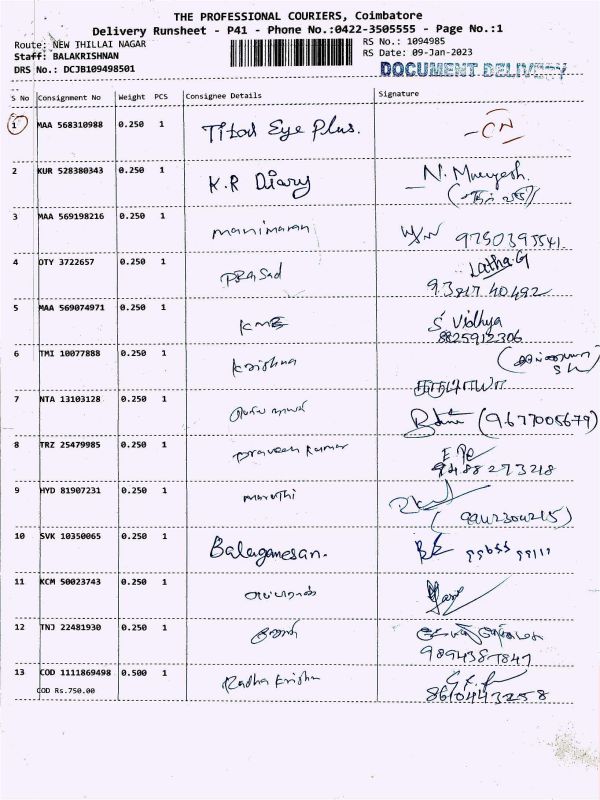 THE PROFESSIONAL COURIERS, Coimbatore
Delivery Runsheet - P41 - Phone No.:0422-3505555 - Page No.:1
Route: NEW THILLAI NAGAR RS No.: 1094985
Staff: BALAKRISHNAN RS Date: 09-Jan-2023
DRS No.: DCJB109498501 DOCUMENT DELIVERY
S No Consignment No Weight PCS Consignee Details Signature
1 MAA 568310988 0.250 1 Titan Eye Plus. -CN
2 KUR 528380343 0.250 1 K.R Diary N. Murugesh.
3 MAA 569198216 0.250 1 manimaran 9750395541.
4 DTY 3722657 0.250 1 prasad Latha.G
9381740492
5 MAA 569074971 0.250 1 KMB S Vidhya
8825912306
6 TMI 10077888 0.250 1 Krishna
7 NTA 13103128 0.250 1 (9677005679)
8 TRZ 25479985 0.250 1 praveen kumar
9488273218
9 HYD 81907231 0.250 1 maruthi
10 SVK 10350065 0.250 1 Balaganesan.
11 KCM 50023743 0.250 1
12 TNJ 22481930 0.250 1
9894387847
13 COD 1111869498 0.500 1 Radha Krishn
COD Rs.750.00 8610443258